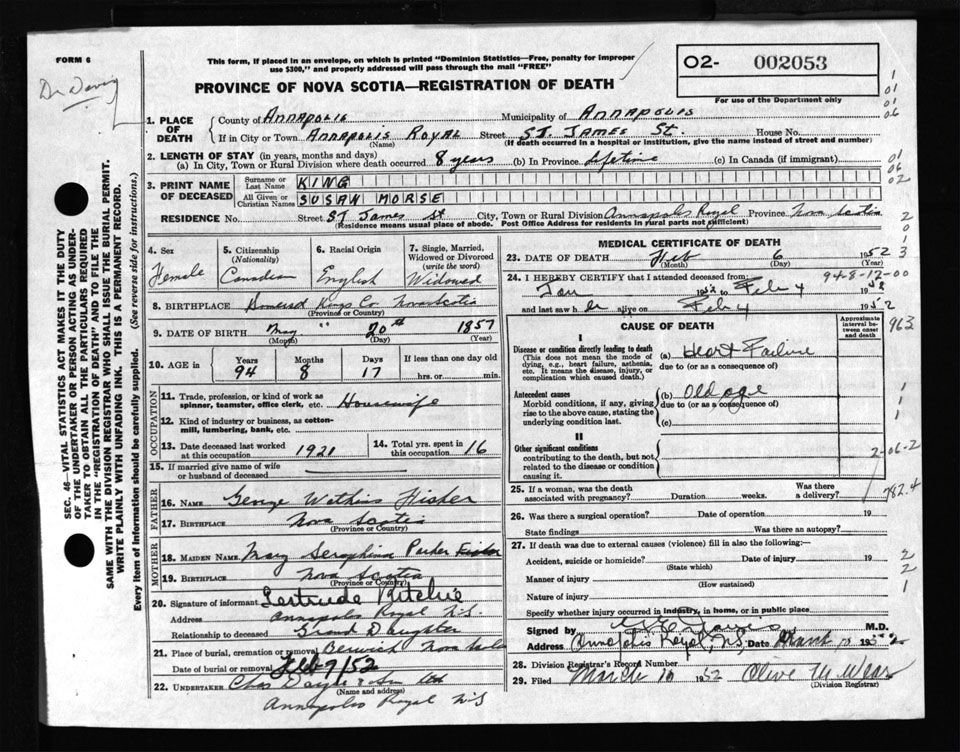 FORM 6
This form, if placed in an envelope, on which is printed "Dominion Statistics—Free, penalty for improper
use $300," and properly addressed will pass through the mail "FREE"
O2- 002053
For use of the Department only
PROVINCE OF NOVA SCOTIA—REGISTRATION OF DEATH
1. PLACE OF DEATH
County of Annapolis
Municipality of Annapolis
If in City or Town Annapolis Royal Street St. James St. House No.
(Name) (If death occurred in a hospital or institution, give the name instead of street and number)
2. LENGTH OF STAY (in years, months and days)
(a) In City, Town or Rural Division where death occurred 8 years (b) In Province Lifetime (c) In Canada (if immigrant)
3. PRINT NAME OF DECEASED
Surname or Last Name KING
All Given or Christian Names SUSAN MORSE
RESIDENCE No. Street St James St City, Town or Rural Division Annapolis Royal Province Nova Scotia
(Residence means usual place of abode. Post Office Address for residents in rural parts not sufficient)
4. Sex Female
5. Citizenship (Nationality) Canadian
6. Racial Origin English
7. Single, Married, Widowed or Divorced (write the word) Widowed
8. BIRTHPLACE Somerset Kings Co Nova Scotia
(Province or Country)
9. DATE OF BIRTH May 20th 1857
(Month) (Day) (Year)
10. AGE in Years 94 Months 8 Days 17 If less than one day old
hrs. or min.
OCCUPATION
11. Trade, profession, or kind of work as
spinner, teamster, office clerk, etc. Housewife
12. Kind of industry or business, as cotton-
mill, lumbering, bank, etc.
13. Date deceased last worked
at this occupation 1921
14. Total yrs. spent in
this occupation 16
15. If married give name of wife
or husband of deceased
FATHER
16. NAME George Watkins Fisher
17. BIRTHPLACE Nova Scotia
(Province or Country)
MOTHER
18. MAIDEN NAME Mary Seraphina Parker
19. BIRTHPLACE Nova Scotia
(Province or Country)
20. Signature of informant Gertrude Ritchie
Address Annapolis Royal N.S.
Relationship to deceased Grand Daughter
21. Place of burial, cremation or removal Berwick Nova Scotia
Date of burial or removal Feb 9/52
22. UNDERTAKER Chas
(Name and address)
Annapolis Royal N.S
MEDICAL CERTIFICATE OF DEATH
23. DATE OF DEATH Feb 6 1952
(Month) (Day) (Year)
24. I HEREBY CERTIFY that I attended deceased from:
Jan 1952 to Feb 4 1952
and last saw her alive on Feb 4 1952
CAUSE OF DEATH
Approximate interval between onset and death
I
Disease or condition directly leading to death
(This does not mean the mode of
dying, e.g., heart failure, asthenia,
etc. It means the disease, injury, or
complication which caused death.)
(a) Heart Failure
due to (or as a consequence of)
Antecedent causes
Morbid conditions, if any, giving
rise to the above cause, stating the
underlying condition last.
(b) Old age
due to (or as a consequence of)
(c)
II
Other significant conditions
contributing to the death, but not
related to the disease or condition
causing it.
25. If a woman, was the death
associated with pregnancy? Duration weeks. Was there
a delivery?
26. Was there a surgical operation? Date of operation 19
State findings Was there an autopsy?
27. If death was due to external causes (violence) fill in also the following:
Accident, suicide or homicide? Date of injury 19
(State which)
Manner of injury
(How sustained)
Nature of injury
Specify whether injury occurred in industry, in home, or in public place
Signed by M.D.
Address Annapolis Royal, N.S. Date March 10 1952
28. Division Registrar's Record Number
29. Filed March 10 1952 Olive M.
(Division Registrar)
SEC. 46—VITAL STATISTICS ACT MAKES IT THE DUTY
OF THE UNDERTAKER OR PERSON ACTING AS UNDER-
TAKER TO OBTAIN ALL THE PARTICULARS REQUIRED
IN THE "REGISTRATION OF DEATH" AND TO FILE THE
SAME WITH THE DIVISION REGISTRAR WHO SHALL ISSUE THE BURIAL PERMIT.
WRITE PLAINLY WITH UNFADING INK. THIS IS A PERMANENT RECORD.
Every item of information should be carefully supplied. (See reverse side for instructions.)
1
01
01
06
01
06
02
2
0
1
3
948-12-00
963
1
1
1
2-06-2
782.4
2
2
1